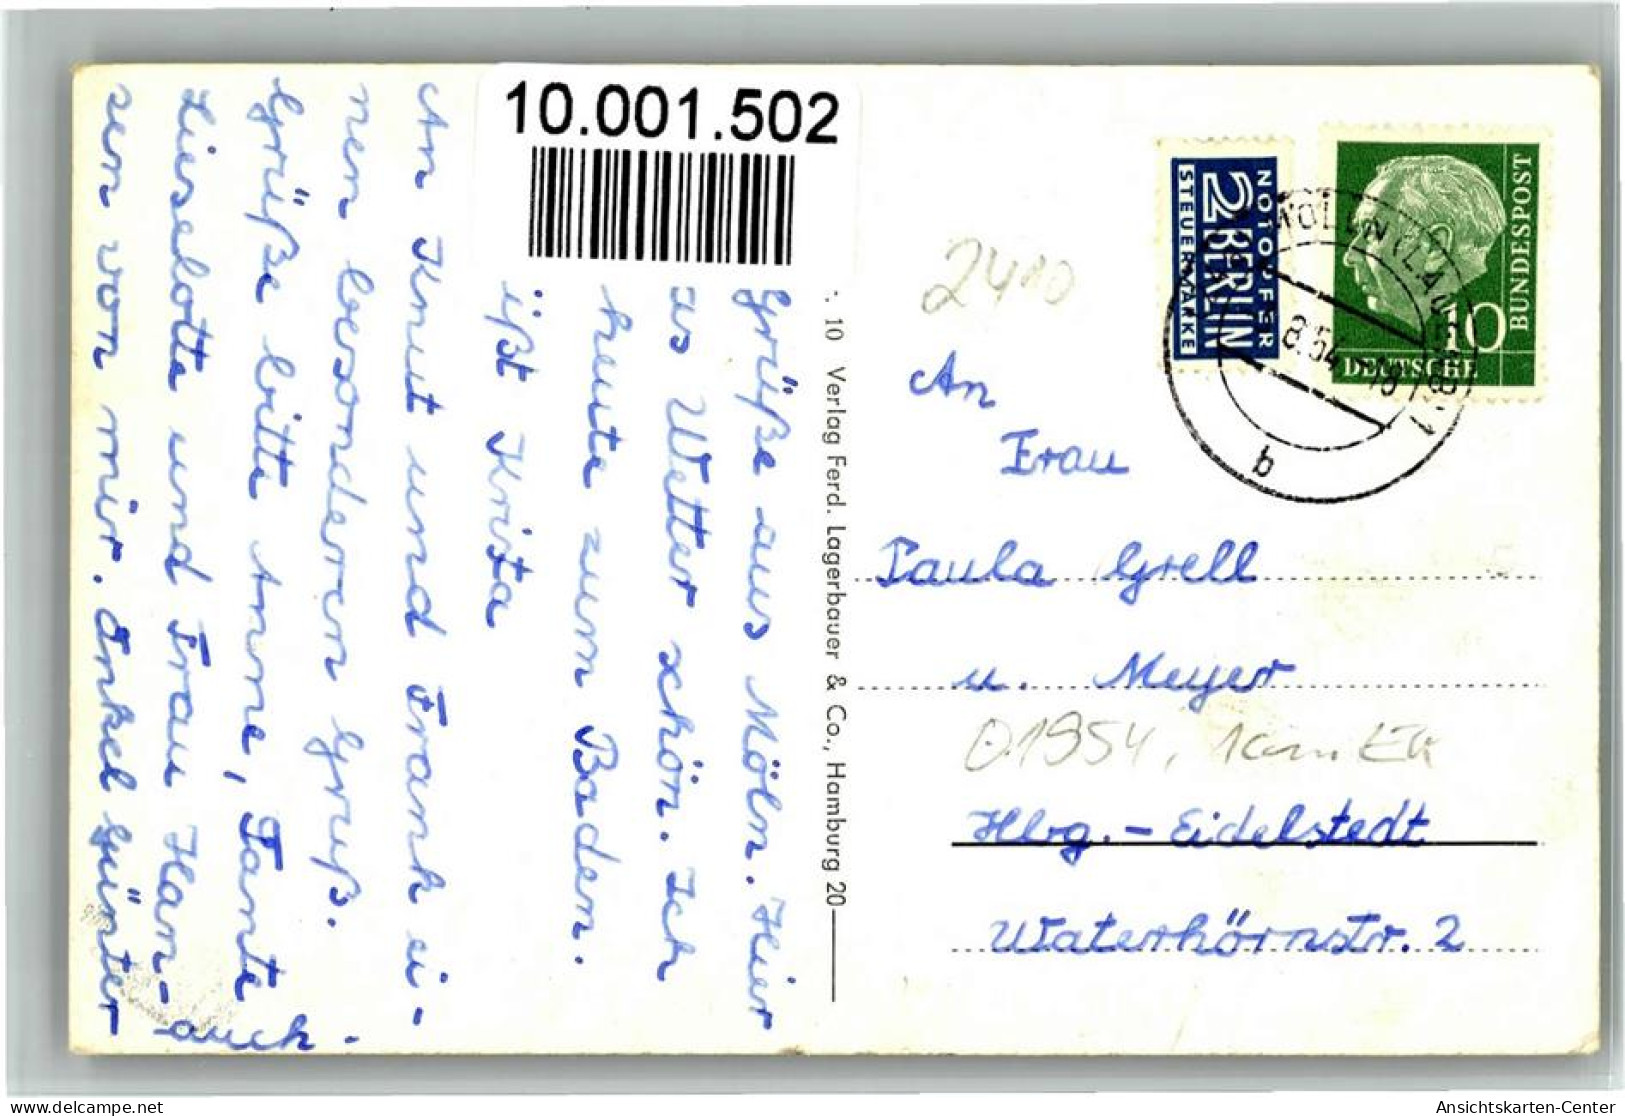 10.001.502
Grüße aus Möln. Hier
is Wetter schön. Ich
heute zum Baden.
ißt Krista
An Knut und Frank ei-
nen besonderen Gruß.
Grüße bitte Anne, Tante
Lieselotte und Frau Han-
sen von mir. Onkel Günter
auch.
. 10 Verlag Ferd. Lagerbauer & Co., Hamburg 20
NOTOPFER
2 BERLIN
STEUERMARKE
DEUTSCHE
BUNDESPOST
10
MÖLLN (LAUENBG)
8.54
b
2410
An
Frau
Paula Grell
u. Meyer
01954,
Hbg.-Eidelstedt
Waterhörnstr. 2
Ansichtskarten-Center